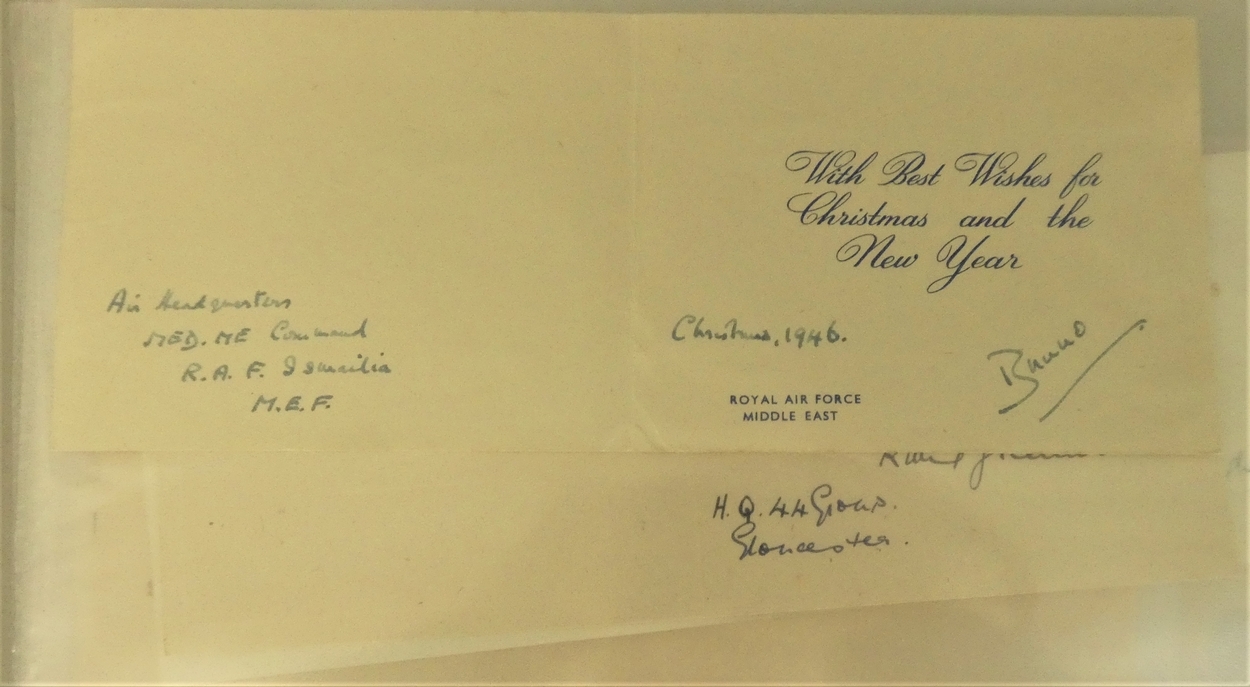 With Best Wishes for
Christmas and the
New Year
Air Headquarters
MED. ME Command
R.A.F. Ismailia
M.E.F.
Christmas, 1946.
Bruno
ROYAL AIR FORCE
MIDDLE EAST
H.Q. 44 Group.
Gloucester.